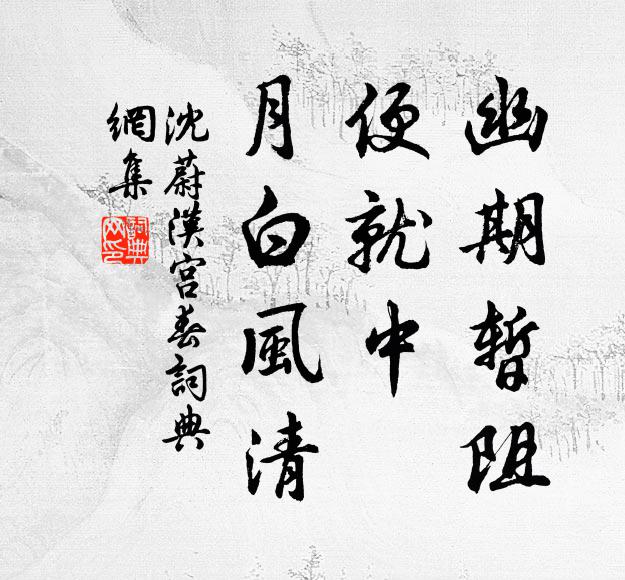 幽期暫阻
便就中
月白風清
沈蔚漢宮春詞典
網集
詞典
网印